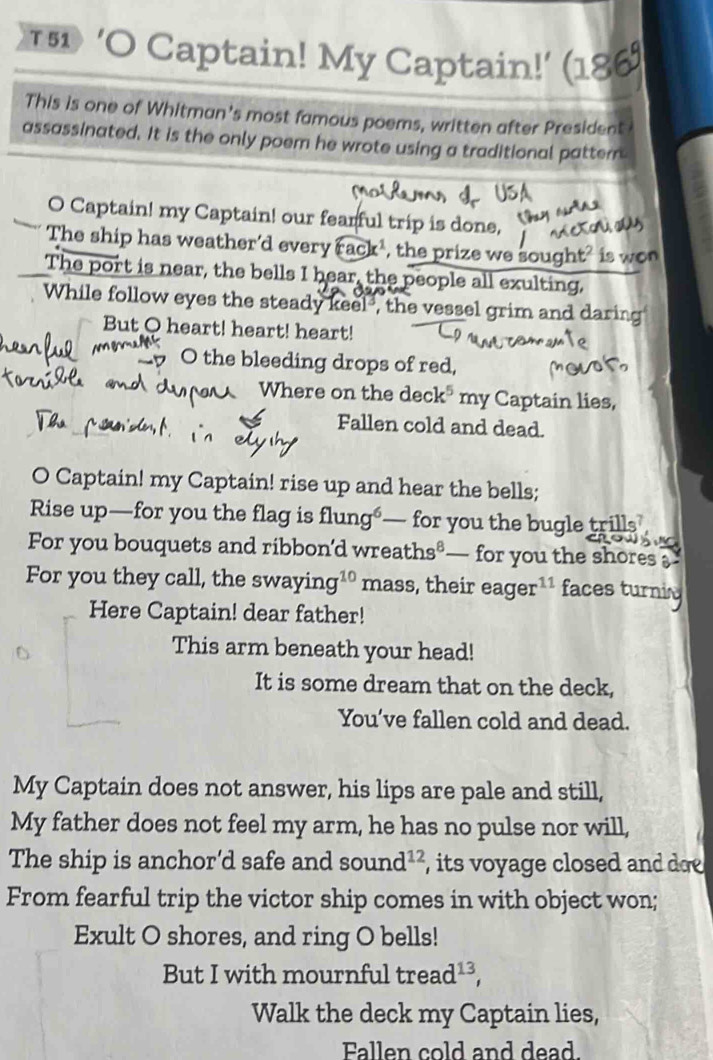 T 51 'O Captain! My Captain!' (1865
This is one of Whitman's most famous poems, written after President
assassinated. It is the only poem he wrote using a traditional pattern.
USA
O Captain! my Captain! our fearful trip is done,
they were
The ship has weather'd every rack¹, the prize we sought² is won
The port is near, the bells I hear, the people all exulting,
While follow eyes the steady keel³, the vessel grim and daring
But O heart! heart! heart!
O the bleeding drops of red,
terrible and
Where on the deck⁵ my Captain lies,
The president is dying
Fallen cold and dead.
O Captain! my Captain! rise up and hear the bells;
Rise up—for you the flag is flung⁶— for you the bugle trills⁷,
For you bouquets and ribbon'd wreaths⁸— for you the shores a-
crowding
For you they call, the swaying¹⁰ mass, their eager¹¹ faces turning
Here Captain! dear father!
This arm beneath your head!
It is some dream that on the deck,
You've fallen cold and dead.
My Captain does not answer, his lips are pale and still,
My father does not feel my arm, he has no pulse nor will,
The ship is anchor'd safe and sound¹², its voyage closed and done
From fearful trip the victor ship comes in with object won;
Exult O shores, and ring O bells!
But I with mournful tread¹³,
Walk the deck my Captain lies,
Fallen cold and dead.